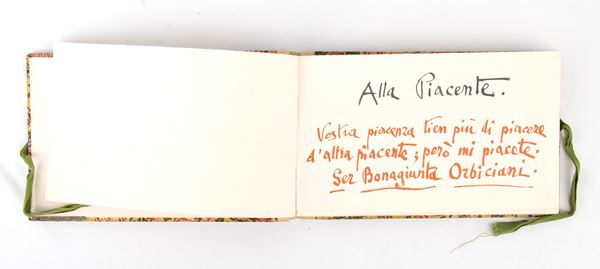 Alla Piacente.
Vostra piacenza tien più di piacere
d'altra piacente; però mi piacete.
Ser Bonagiunta Orbiciani.